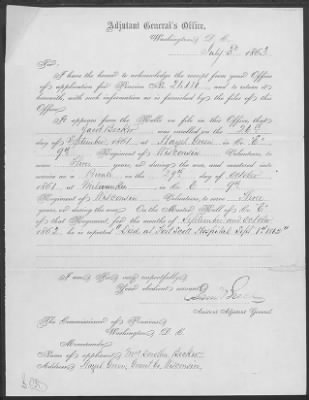 Adjutant General's Office,
Washington, D. C.
July 3d 1863
Sir:
I have the honor to acknowledge the receipt from your Office
of application for Pension No. 26.116, and to return it
herewith, with such information as is furnished by the files of this
Office.
It appears from the Rolls on file in this Office, that
Jacob Becker was enrolled on the 26th
day of September, 1861, at Hazel Green in Co. "C"
9th Regiment of Wisconsin Volunteers, to
serve Three years, or during the war, and mustered into
service as a Private on the 29th day of October
1861, at Milwaukee, in Co. C 9th
Regiment of Wisconsin Volunteers, to serve Three
years, or during the war. On the Muster Roll of Co. "C"
of that Regiment, for the months of September and October
1862, he is reported "Died at Fort Scott Hospital Sept. 1862"
I am, Sir, very respectfully,
Your obedient servant,
Assistant Adjutant General.
The Commissioner of Pensions,
Washington, D. C.
Memoranda:
Name of applicant, Becker
Address, Hazel Green, Grant Co. Wisconsin